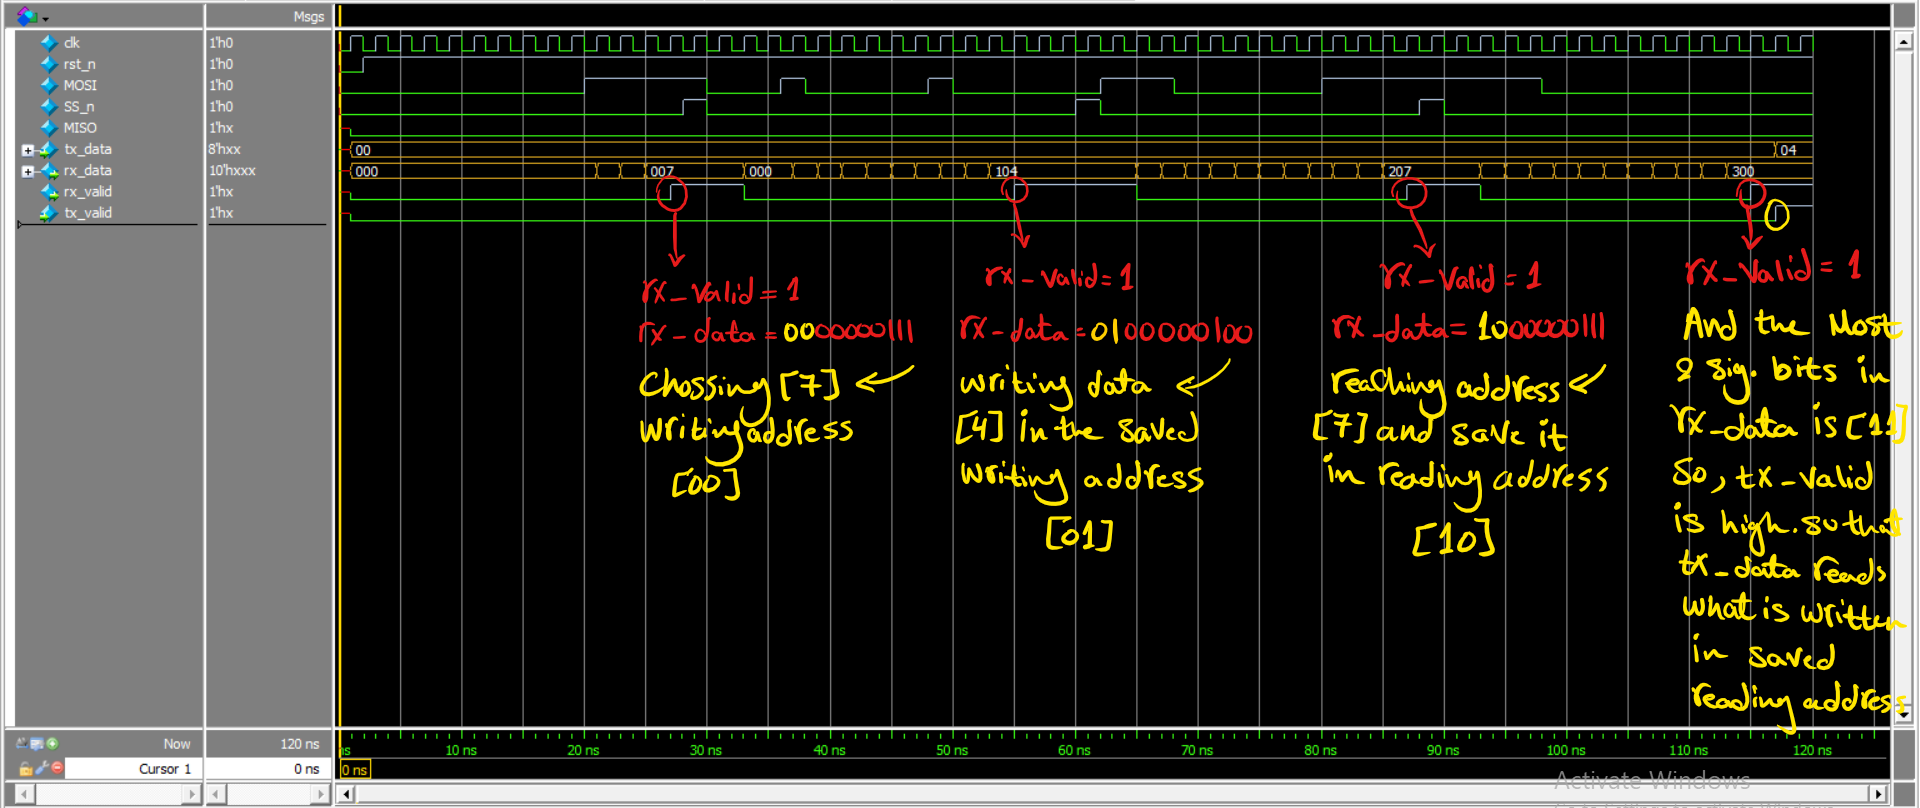 Msgs
clk 1'h0
rst_n 1'h0
MOSI 1'h0
SS_n 1'h0
MISO 1'hx
tx_data 8'hxx 00 04
rx_data 10'hxxx 000 007 000 104 207 300
rx_valid 1'hx
tx_valid 1'hx
rx_valid = 1
rx_data = 0000000111
Chossing [7]
writing address
[00]
rx_valid=1
rx_data=0100000100
writing data
[4] in the saved
writing address
[01]
rx_valid = 1
rx_data= 1000000111
reaching address
[7] and save it
in reading address
[10]
rx_valid = 1
And the Most
2 sig. bits in
rx_data is [11]
So, tx_valid
is high. so that
tx_data reads
what is written
in saved
reading address
Now 120 ns
10 ns 20 ns 30 ns 40 ns 50 ns 60 ns 70 ns 80 ns 90 ns 100 ns 110 ns 120 ns
Cursor 1 0 ns 0 ns
Activate Windows